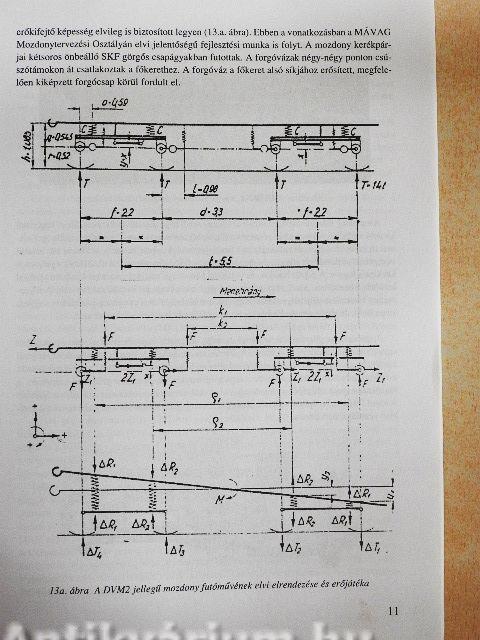 erőkifejtő képesség elvileg is biztosított legyen (13.a. ábra). Ebben a vonatkozásban a MÁVAG
Mozdonytervezési Osztályán elvi jelentőségű fejlesztési munka is folyt. A mozdony kerékpár-
jai kétsoros önbeálló SKF görgős csapágyakban futottak. A forgóvázak négy-négy ponton csú-
szótámokon át csatlakoztak a főkerethez. A forgóváz a főkeret alsó síkjához erősített, megfele-
lően kiképzett forgócsap körül fordult el.
C C C C
T T T T=14t
f=2,2 d=3,3 f=2,2
t=5,5
Menetirány
k₁
k₂
F F F F
Z
F Z₁ 2Z₁ x F F Z₁ 2Z₁ x F Z₁
ϱ₁
ϱ₂
ΔR₁ ΔR₂ ΔR₂ ΔR₁
M
ΔR₁ ΔR₂ ΔR₂ ΔR₁
ΔT₄ ΔT₃ ΔT₂ ΔT₁
13a. ábra A DVM2 jellegű mozdony futóművének elvi elrendezése és erőjátéka
11
Antikvárium.hu